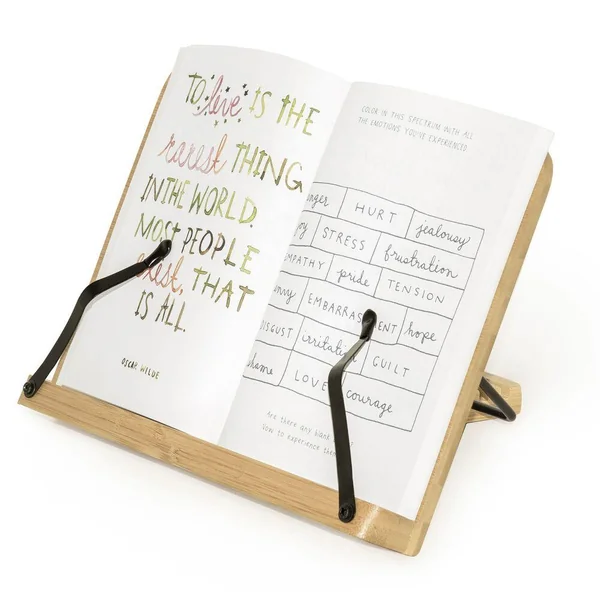 TO live IS THE
rarest THING
IN THE WORLD.
MOST PEOPLE
exist, THAT
IS ALL.
OSCAR WILDE
COLOR IN THIS SPECTRUM WITH ALL
THE EMOTIONS YOU'VE EXPERIENCED.
nger HURT jealousy
oy STRESS frustration
MPATHY pride TENSION
nvy EMBARRAS ENT hope
ISGUST irritation GUILT
hame LOVE courage
Are there any blank
to experience